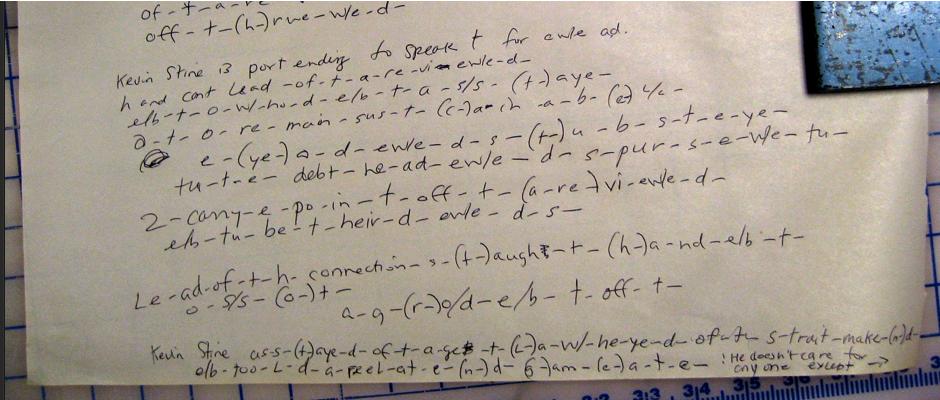 of-t-a-re
off-t-(h-)rue-w/e-d-
Kevin Stine is port ending to speak t for ewle ad.
hand cont Lead -of-t-a-re-vi-ewle-d-
elb-t-o-w/-ho-d-e/b-t-a-s/s-(t-)aye-
a-t-o-re-main-sus-t-(c-)a-in-a-b-(e-)
e-(ye-)a-d-ewle-d-s-(t-)u-b-s-t-e-ye-
tu-t-e- debt-he-ad-ew/e-d-s-pur-s-e-w/e-tu-
2-carry-e-po-in-t-off-t-(a-re-)vi-ewle-d-
e/b-tu-be-t-heir-d-ewle-d-s-
Le-ad-of-t-h-connection-s-(t-)aught-t-(h-)a-nd-e/b-t-
o-s/s-(o-)t-
a-g-(r-)o/d-e/b-t-off-t-
Kevin Stine as-s-(t-)aye-d-of-t-a-ges-t-(L-)a-w/-he-ye-d-of-tu s-trait-make-(n-)d-
e/b-too-L-d-a-peel-at-e-(n-)d-G-)am-(e-)a-t-e- : He doesn't care for
any one except →
3|2 3|3 3|4 3|5 3|6